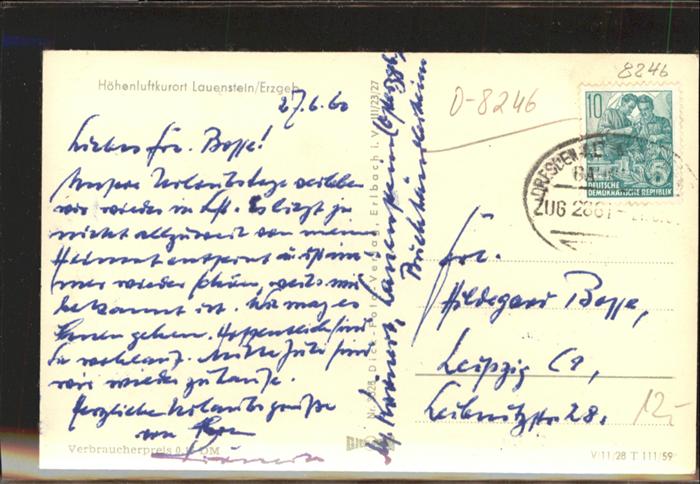 Höhenluftkurort Lauenstein/Erzgeb.
27.6.60
Liebes Frl. Bosse!
Unsere Urlaubstage verleben
wir wieder in L. Es liegt ja
nicht allzuweit von meiner
Heimat entfernt u. ist im-
mer wieder schön, weils mir
bekannt ist. Wie mag es
Ihnen gehen. Hoffentlich sind
Sie wohlauf. Mitte Juli sind
wir wieder zuhause.
Herzliche Urlaubsgrüße
von Ihrer
Verbraucherpreis 0.15 DM
Dick-Foto-Verlag, Erlbach i. V. III/23/27
Lauenstein (Osterzgeb.)
8246
D-8246
10
5
DEUTSCHE
DEMOKRATISCHE REPUBLIK
DRESDEN-
ZUG 2861
Frl.
Hildegard Bosse,
Leipzig C1,
Leibnizstr. 28.
12,-
V/11/28 T 111/59